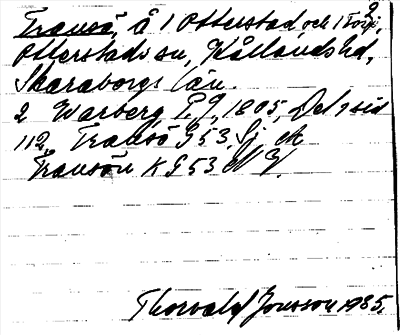 Fransö, å 1 Otterstad och 1 Torp,
Otterstads sn, Kållands hd,
Skaraborgs län.
2 Warberg P.J, 1805, Del 1 sid
112, Fransö G53,
Fransön K G53
Thorvald Jonsson 1935